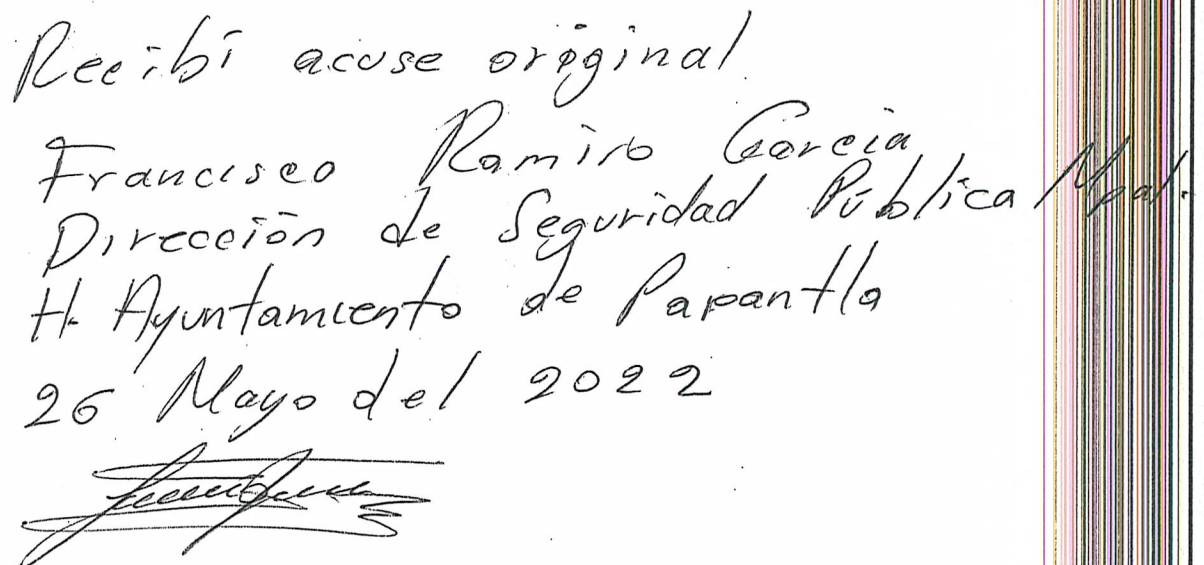 Recibí acuse original
Francisco Ramiro Garcia
Dirección de Seguridad Pública Mpal.
H. Ayuntamiento de Papantla
26 Mayo del 2022